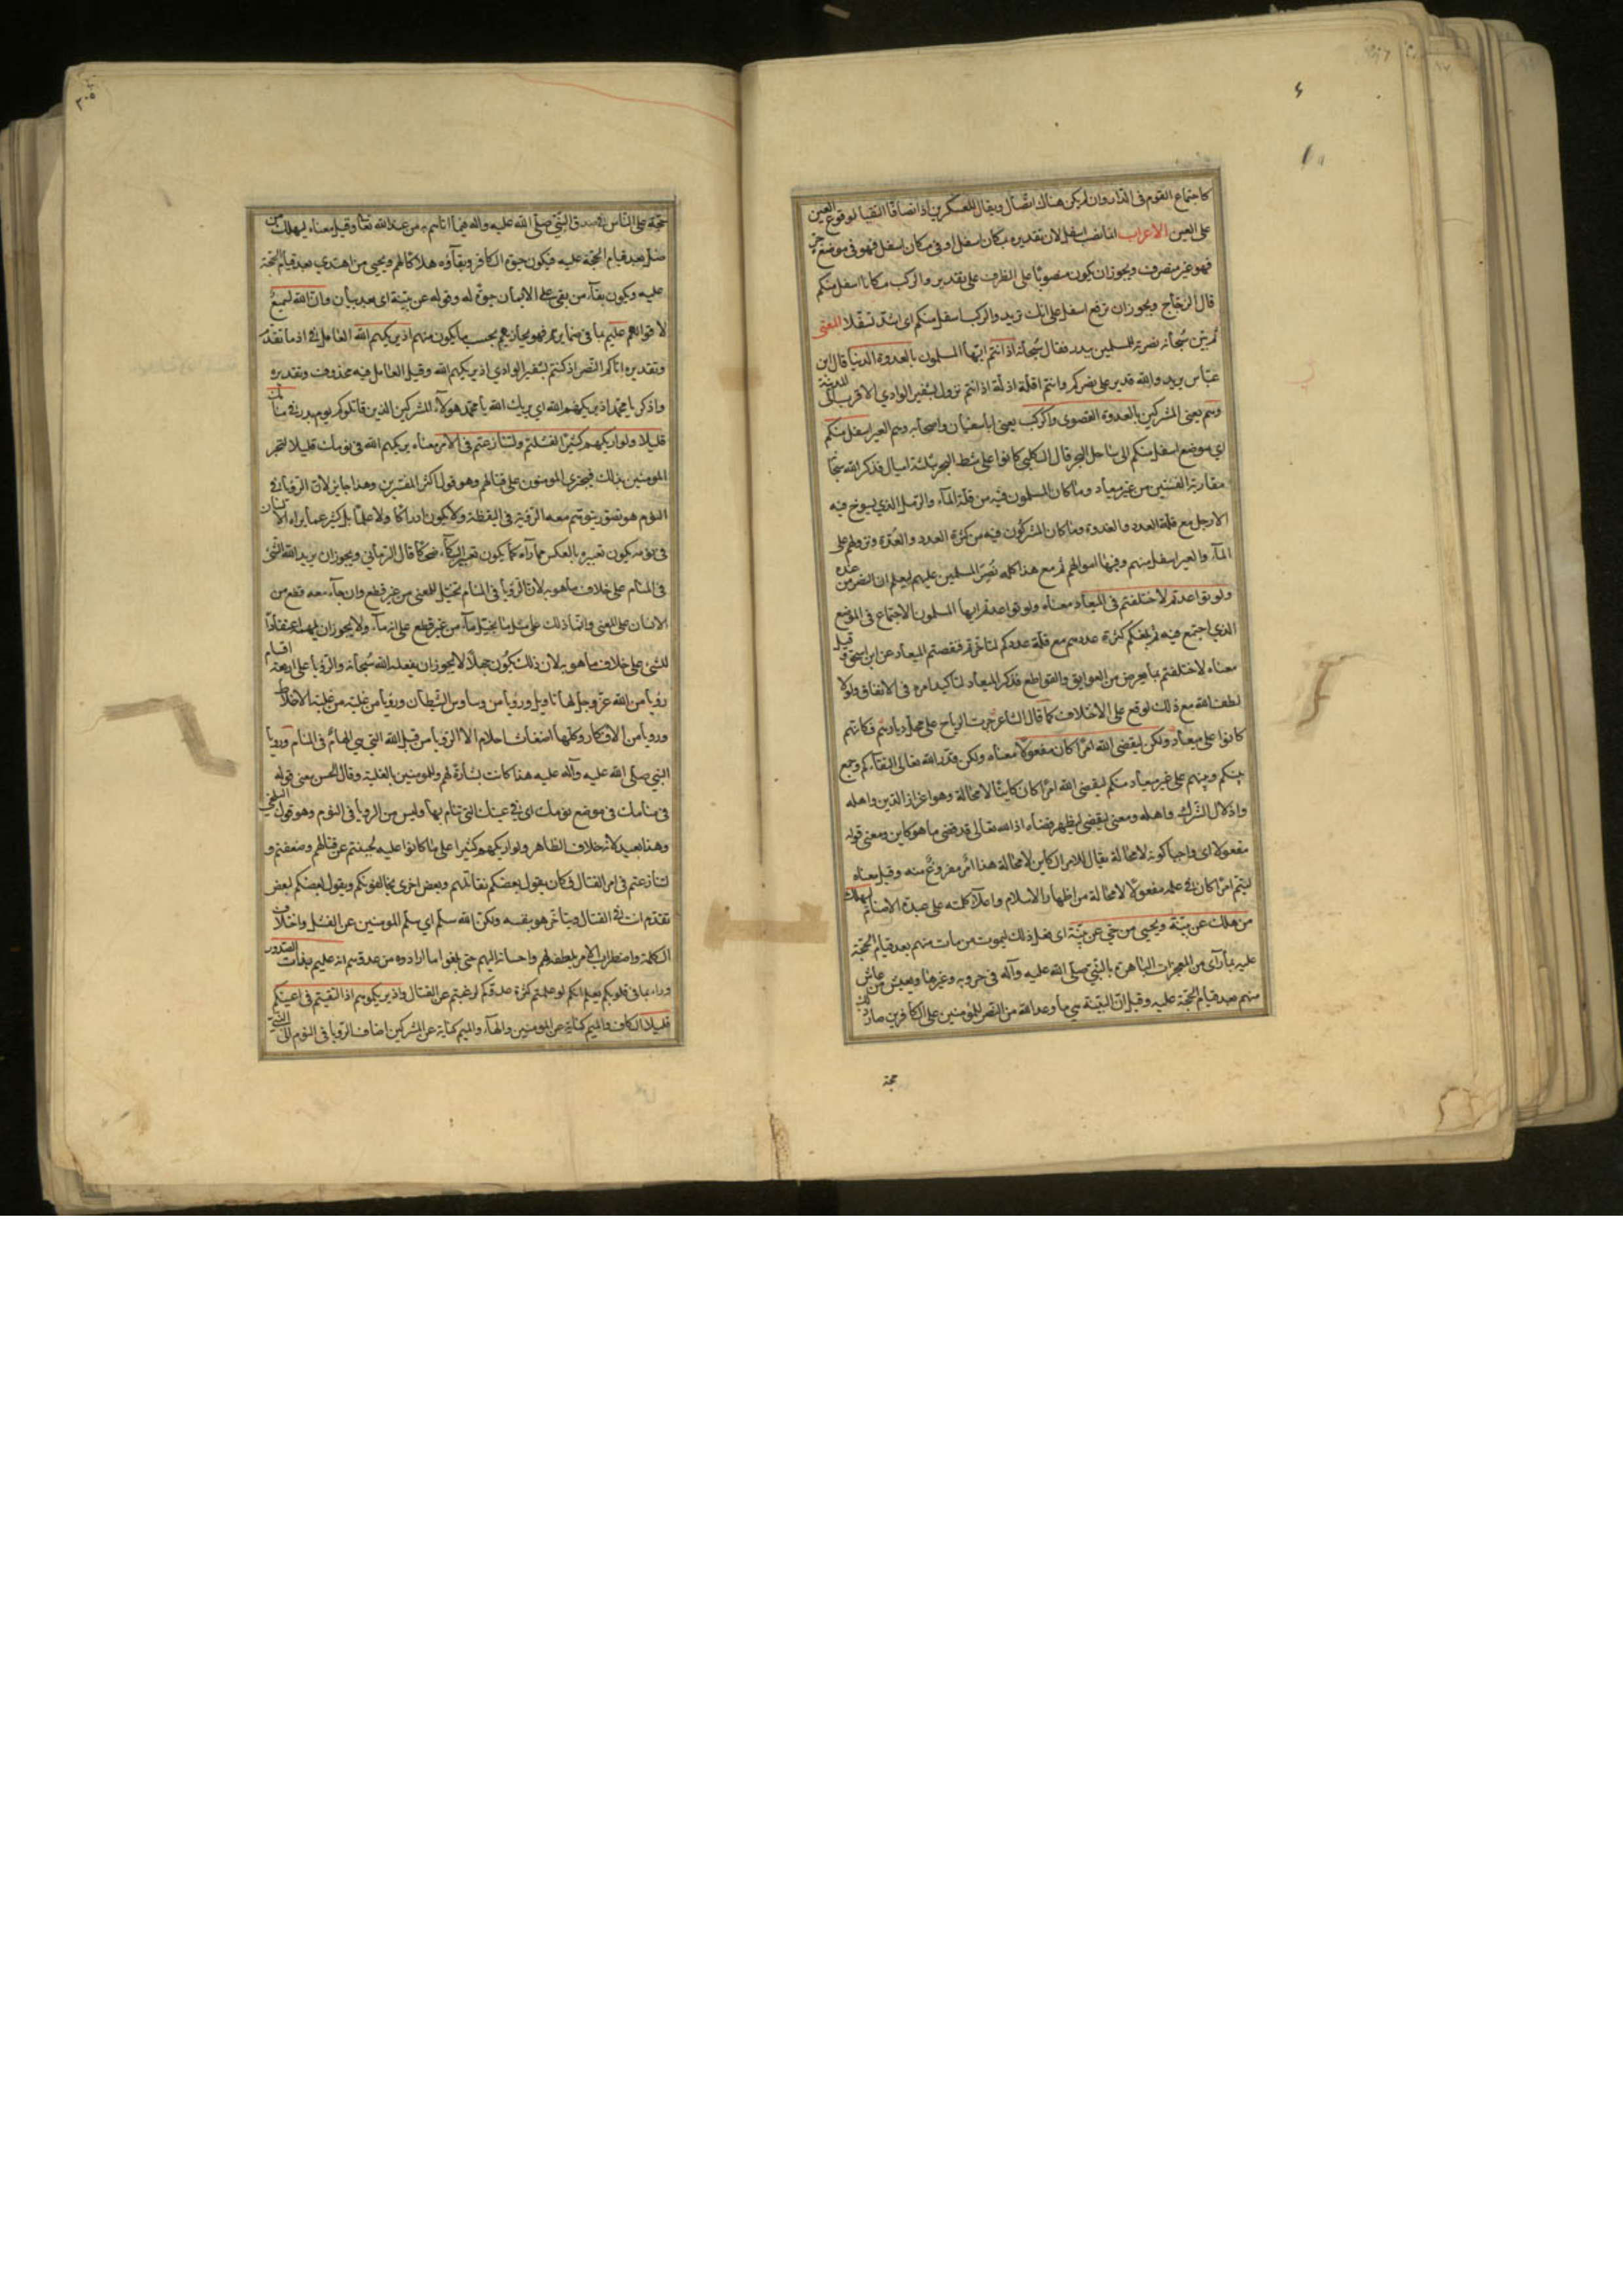 كاجتماع القوم فى الدار وان لم يكن هناك اتصال ويقال للعسكرين اذا تصافا التقيا لوقوع العين
على العين الاعراب انما نصب اسفل لان تقديره بمكان اسفل او فى مكان اسفل فهو فى موضع جر
فهو غير منصرف ويجوز ان يكون منصوبًا على الظرف على تقدير والركب مكانا اسفل منكم
قال الزجاج ويجوز ان ترفع اسفل على انك تريد والركب اسفل منكم اى اشد تسفّلا المعنى
ثم بيّن سبحانه نصرته للمسلمين ببدر فقال سبحانه اذ انتم ايها المسلمون بالعدوة الدنيا قال ابن
عباس يريد والله قدير على نصركم وانتم اقلة اذلة اذ انتم نزول بشفير الوادي الاقرب الى المدينة
وهم يعنى المشركين بالعدوة القصوى والركب يعنى ابا سفيان واصحابه وهم العير اسفل منكم
اى موضع اسفل منكم الى ساحل البحر قال الكلبى كانوا على شط البحر بثلثة اميال فذكر الله سبحانه
مقاربة الفئتين من غير ميعاد وما كان المسلمون فيه من قلة الماء والرمل الذي تسوخ فيه
الارجل مع قلة العدد والعدة وما كان المشركون فيه من كثرة العدد والعدة ونزولهم على
الماء والعير اسفل منهم وفيها اموالهم ثم مع هذا كله نصر المسلمين عليهم ليعلم ان النصر من عنده
ولو تواعدتم لاختلفتم فى الميعاد معناه ولو تواعدتم ايها المسلمون الاجتماع فى الموضع
الذي اجتمع فيه ثم بلغكم كثرة عددهم مع قلة عددكم لتاخرتم فنقضتم الميعاد عن ابن اسحق وقيل
معناه لاختلفتم بما يعرض من العوايق والقواطع فذكر الميعاد لتاكيد امره فى الاتفاق ولولا
لطف الله مع ذلك لوقع على الاختلاف كما قال الشاعر جرت الرياح على محل ديارهم فكانهم
كانوا على ميعاد ولكن ليقضى الله امرًا كان مفعولًا معناه ولكن قدر الله تعالى التقاءكم وجمع
بينكم وبينهم على غير ميعاد منكم ليقضى الله امرًا كان كاينًا لا محالة وهو اعزاز الدين واهله
واذلال الشرك واهله ومعنى ليقضى ليظهر قضاءه اذ الله تعالى قد قضى ما هو كاين ومعنى قوله
مفعولا اى واجبا كونه لا محالة يقال للامر الكاين لا محالة هذا امر مفروغ منه وقيل معناه
ليتم امرًا كان فى علمه مفعولًا لا محالة من اظهار الاسلام واعلاء كلمته على عبدة الاصنام ليهلك
من هلك عن بينة ويحيى من حيّ عن بيّنة اى فعل ذلك ليموت من مات منهم بعد قيام الحجّة
عليه بما رآى من المعجزات الباهرة بالنبي صلى الله عليه وآله فى حروبه وغيرها ويعيش من عاش
منهم بعد قيام الحجّة عليه وقيل ان البينة هي ما وعد الله من النصر للمؤمنين على الكافرين صار ذلك
حجة
٣٠٥
حجّة على الناس فى صدق النبي صلى الله عليه وآله فيما اتاهم به من عند الله تعالى وقيل معناه ليهلك من
ضلّ بعد قيام الحجّة عليه فيكون حيوة الكافر وبقاؤه هلاكا لهم ويحيى من اهتدي بعد قيام الحجّة
عليه ويكون بقاء من بقى على الايمان حيوة له وقوله عن بيّنة اى بعد بيان وانّ الله لسميعٌ
لاقوالهم عليم بما فى ضمايرهم فهو يجازيهم بحسب ما يكون منهم اذ يريكهم الله العامل فى اذ ما تقدّم
وتقديره اتاكم النصر اذ كنتم بشفير الوادي اذ يريكهم الله وقيل العامل فيه محذوف وتقديره
واذكر يا محمد اذ يريكهم الله اي يريك الله يا محمد هولاء المشركين الذين قاتلوكم يوم بدر فى منامك
قليلا ولو اريكهم كثيرًا لفشلتم ولتنازعتم فى الامر معناه يريكهم الله فى نومك قليلا لتخبر
المومنين بذلك فيجترى المومنون على قتالهم وهو قول اكثر المفسرين وهذا جايز لان الرؤيا فى
النوم هو تصور يتوهم معه الرؤية فى اليقظة ولا يكون ادراكا ولا علمًا بل كثير مما يراه الانسان
فى نومه يكون تعبيره بالعكس مما رآه كما يكون تعبير البكاء ضحكًا قال الرماني ويجوز ان يريد الله الشئ
فى المنام على خلاف ما هو به لان الرؤيا فى المنام تخيّل للمعنى من غير قطع وان جاء معه قطع من
الانسان على المعنى وانما ذلك على مثل ما يخيّل ماء من غير قطع على انه ماء ولا يجوز ان يلهمه اعتقادًا
للشئ على خلاف ما هو به لان ذلك يكون جهلًا لا يجوز ان يفعله الله سبحانه والرؤيا على اربعة اقسام
رؤيا من الله عزّ وجلّ لها تاويل ورؤيا من وساوس الشيطان ورؤيا من غلبة الاخلاط
ورويا من الافكار وكلها اضغاث احلام الا الرؤيا من قبل الله التي هي الهام فى المنام ورويا
النبي صلى الله عليه وآله عليه هذا كانت بشارة لهم وللمومنين بالغلبة وقال الحسن معنى قوله
فى منامك فى موضع نومك اى فى عينك التى تنام بها وليس من الرؤيا فى النوم وهو قول البلخي
وهذا بعيد لانه خلاف الظاهر ولو اريكهم كثيرا على ما كانوا عليه لجبنتم عن قتالهم وضعفتم و
لتنازعتم فى امر القتال فكان يقول بعضكم نقاتلهم وبعض اخرى يخالفونكم ويقول بعضكم لبعض
تقدم انت فى القتال ويتاخر هو بنفسه ولكن الله سلّم اي سلّم المومنين عن الفشل واختلاف
الكلمة واضطراب الامر بلطفه لهم واحسانه اليهم حتى بلغوا ما ارادوه من عدوهم انه عليم بذات الصدور
بما فى قلوبكم يعلم انكم لو علمتم كثرة عدوكم لرغبتم عن القتال واذ يريكموهم اذ التقيتم فى اعينكم
قليلا الكاف والميم كناية عن المومنين والهاء والميم كناية عن المشركين اضاف الرؤيا فى النوم الى النبي